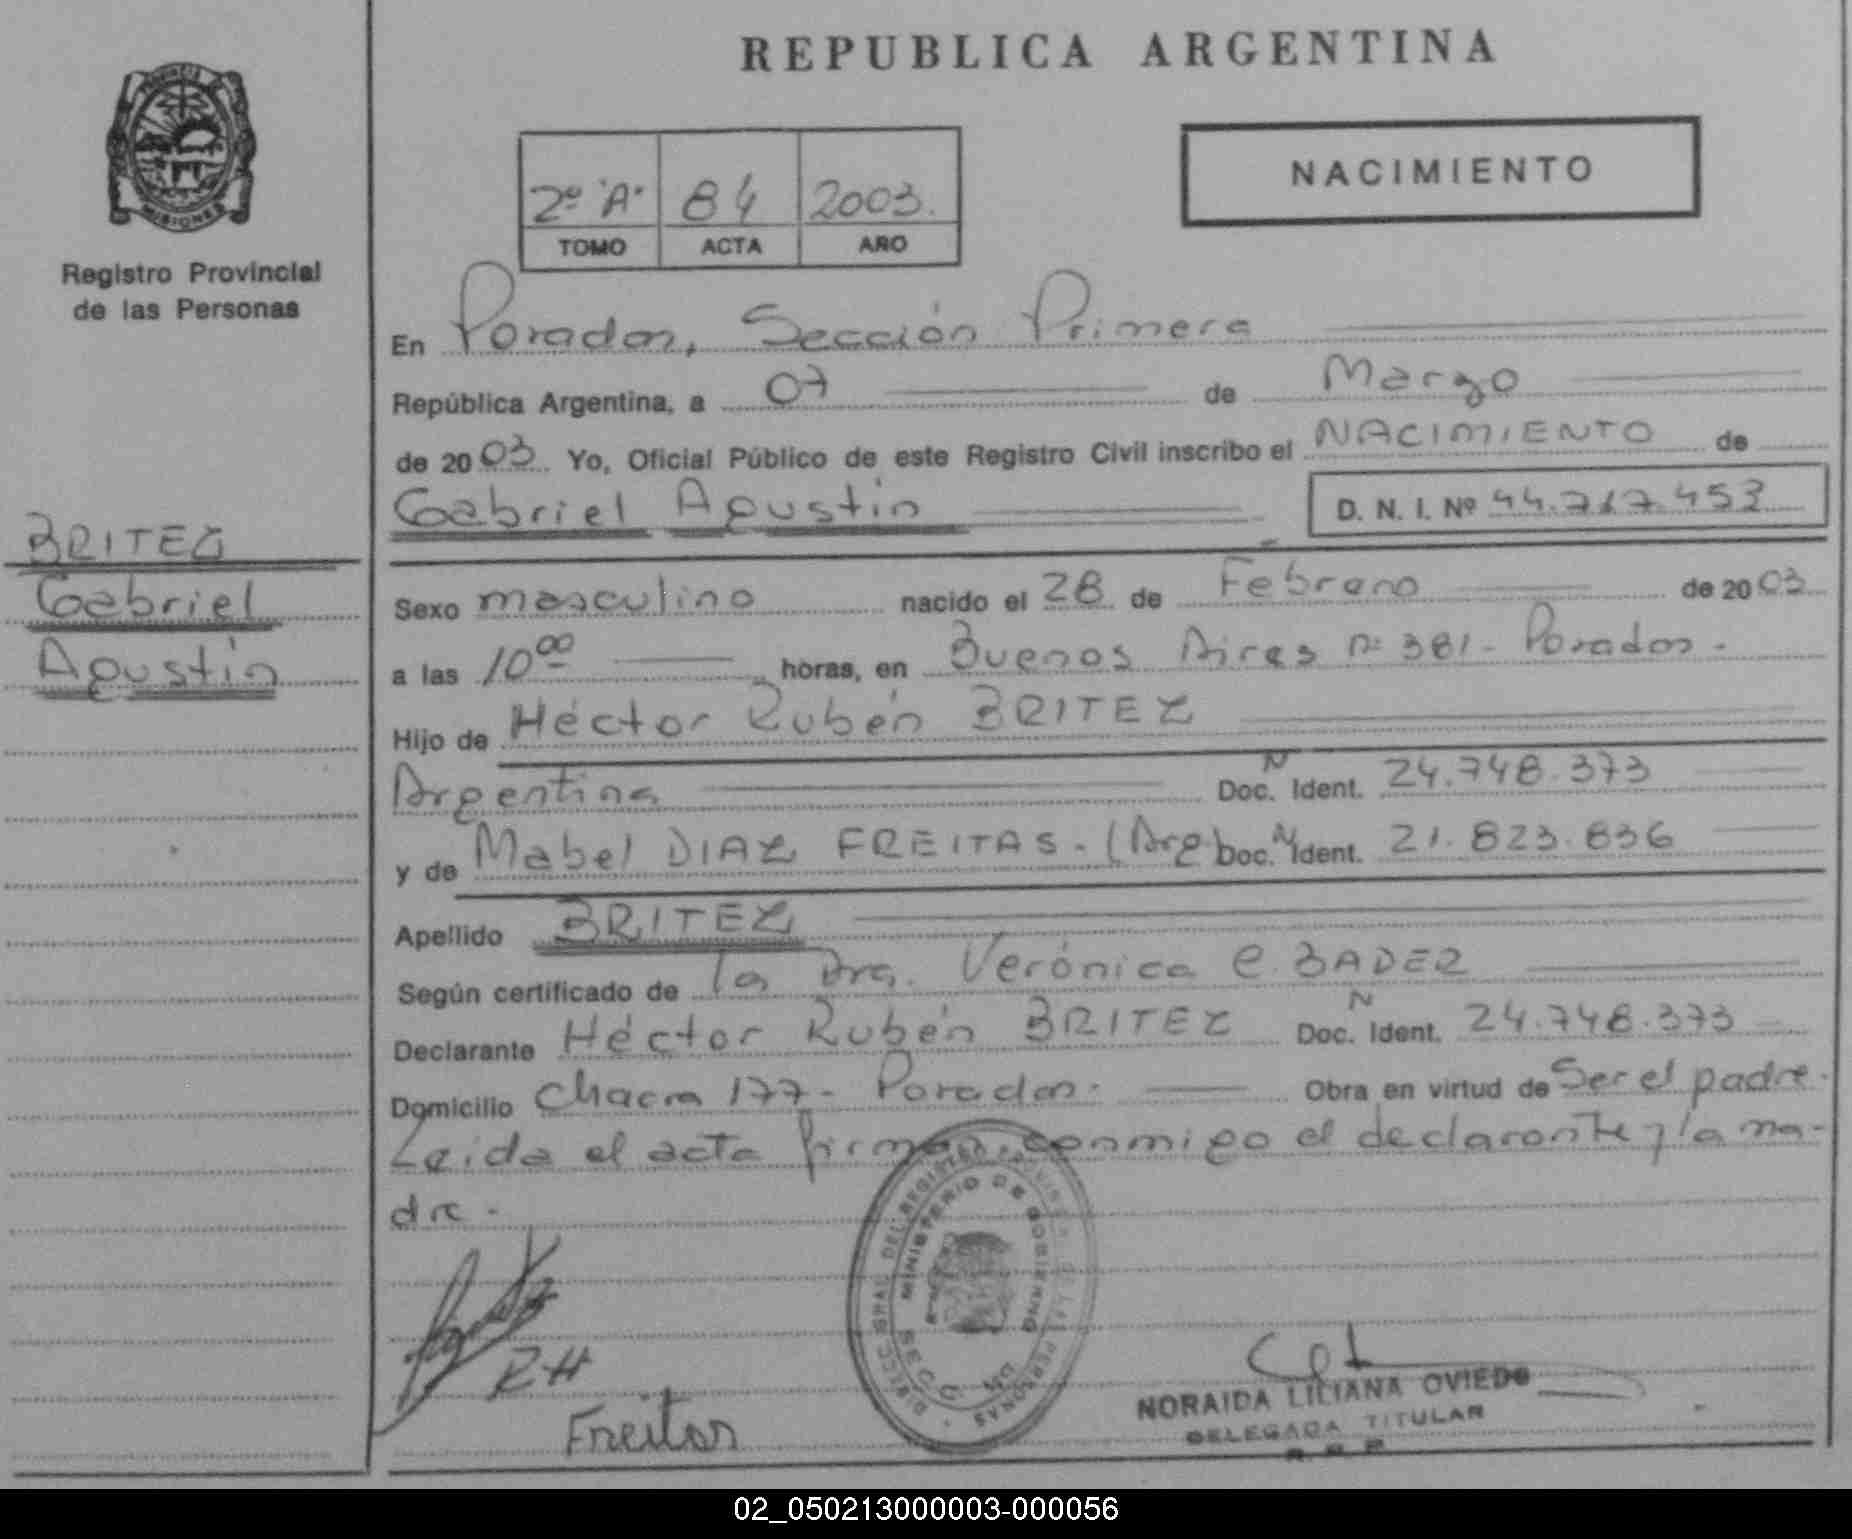 REPUBLICA ARGENTINA
NACIMIENTO
2º "A" 84 2003.
TOMO ACTA AÑO
MISIONES
Registro Provincial
de las Personas
BRITEZ
Gabriel
Agustín
En Posadas, Sección Primera
República Argentina, a 07 de Marzo
de 2003. Yo, Oficial Público de este Registro Civil inscribo el NACIMIENTO de
Gabriel Agustín D. N. I. Nº 44.717.453
Sexo masculino nacido el 28 de Febrero de 2003
a las 10⁰⁰ horas, en Buenos Aires nº 381 - Posadas -
Hijo de Héctor Rubén BRITEZ
Argentina Doc. N Ident. 24.748.373
y de Mabel DIAZ FREITAS - (Arg) Doc. N Ident. 21.823.836
Apellido BRITEZ
Según certificado de la Dra. Verónica C. BADER
Declarante Héctor Rubén BRITEZ Doc. N Ident. 24.748.373
Domicilio Chacra 177 - Posadas - Obra en virtud de Ser el padre.
Leida el acta firman conmigo el declarante y la ma-
dre -
RH
Freitas
MINISTERIO DE GOBIERNO
NORAIDA LILIANA OVIEDO
DELEGADA TITULAR
R. P. P.
02_050213000003-000056